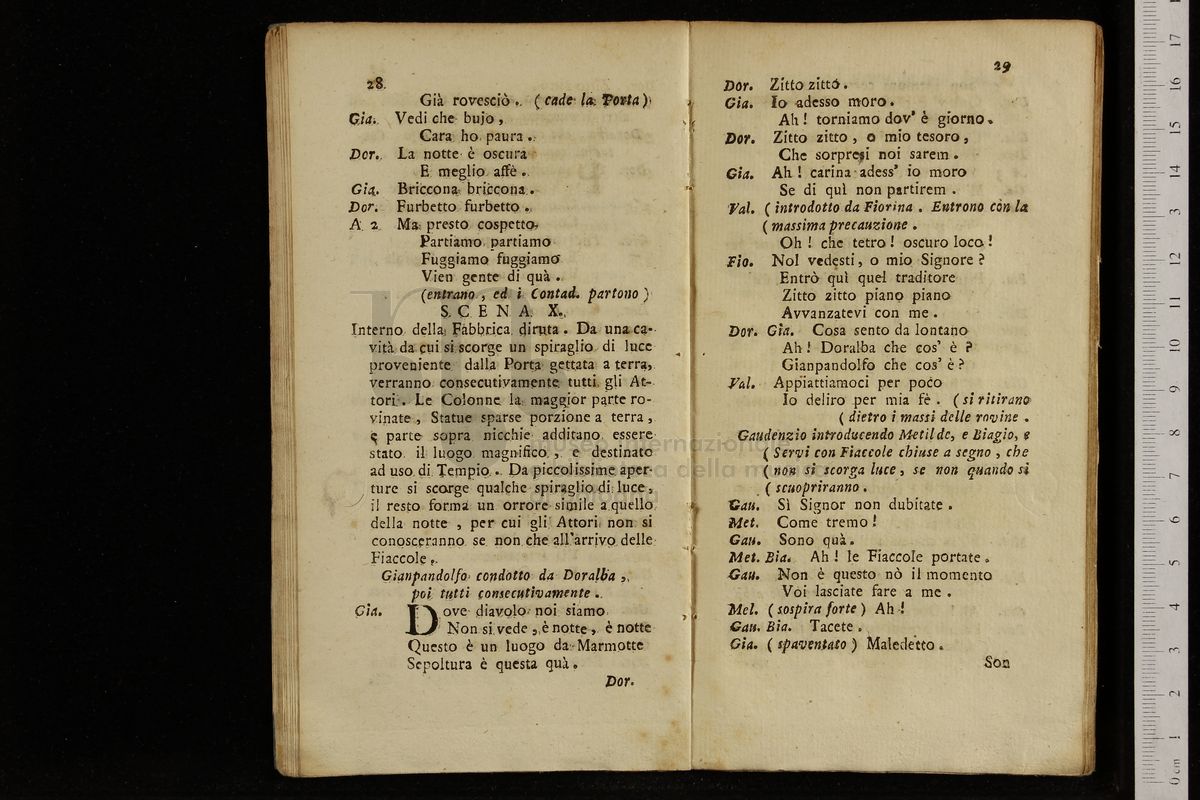 28
Già rovesciò. (cade la Porta)
Gia. Vedi che bujo,
Cara ho paura.
Dor. La notte è oscura
E meglio affè.
Gia. Briccona briccona.
Dor. Furbetto furbetto.
A 2 Ma presto cospetto,
Partiamo partiamo
Fuggiamo fuggiamo
Vien gente di quà.
(entrano, ed i Contad. partono)
SCENA X.
Interno della Fabbrica diruta. Da una ca-
vità da cui si scorge un spiraglio di luce
proveniente dalla Porta gettata a terra,
verranno consecutivamente tutti gli At-
tori. Le Colonne la maggior parte ro-
vinate, Statue sparse porzione a terra,
e parte sopra nicchie additano essere
stato il luogo magnifico, e destinato
ad uso di Tempio. Da piccolissime aper-
ture si scorge qualche spiraglio di luce,
il resto forma un orrore simile a quello
della notte, per cui gli Attori non si
conosceranno se non che all'arrivo delle
Fiaccole.
Gianpandolfo condotto da Doralba,
poi tutti consecutivamente.
Gia. Dove diavolo noi siamo
Non si vede, è notte, è notte
Questo è un luogo da Marmotte
Sepoltura è questa quà.
Dor.
29
Dor. Zitto zitto.
Gia. Io adesso moro.
Ah! torniamo dov' è giorno.
Dor. Zitto zitto, o mio tesoro,
Che sorpresi noi sarem.
Gia. Ah! carina adess' io moro
Se di quì non partirem.
Val. (introdotto da Fiorina. Entrono con la
(massima precauzione.
Oh! che tetro! oscuro loco!
Fio. Nol vedesti, o mio Signore?
Entrò quì quel traditore
Zitto zitto piano piano
Avvanzatevi con me.
Dor. Gia. Cosa sento da lontano
Ah! Doralba che cos' è?
Gianpandolfo che cos' è?
Val. Appiattiamoci per poco
Io deliro per mia fè. (si ritirano
(dietro i massi delle rovine.
Gaudenzio introducendo Metilde, e Biagio, e
(Servi con Fiaccole chiuse a segno, che
(non si scorga luce, se non quando si
(scuopriranno.
Gau. Sì Signor non dubitate.
Met. Come tremo!
Gau. Sono quà.
Met. Bia. Ah! le Fiaccole portate.
Gau. Non è questo nò il momento
Voi lasciate fare a me.
Mel. (sospira forte) Ah!
Gau. Bia. Tacete.
Gia. (spaventato) Maledetto.
Son
museo internazionale
della musica
0 cm 1 2 3 4 5 6 7 8 9 10 11 12 13 14 15 16 17